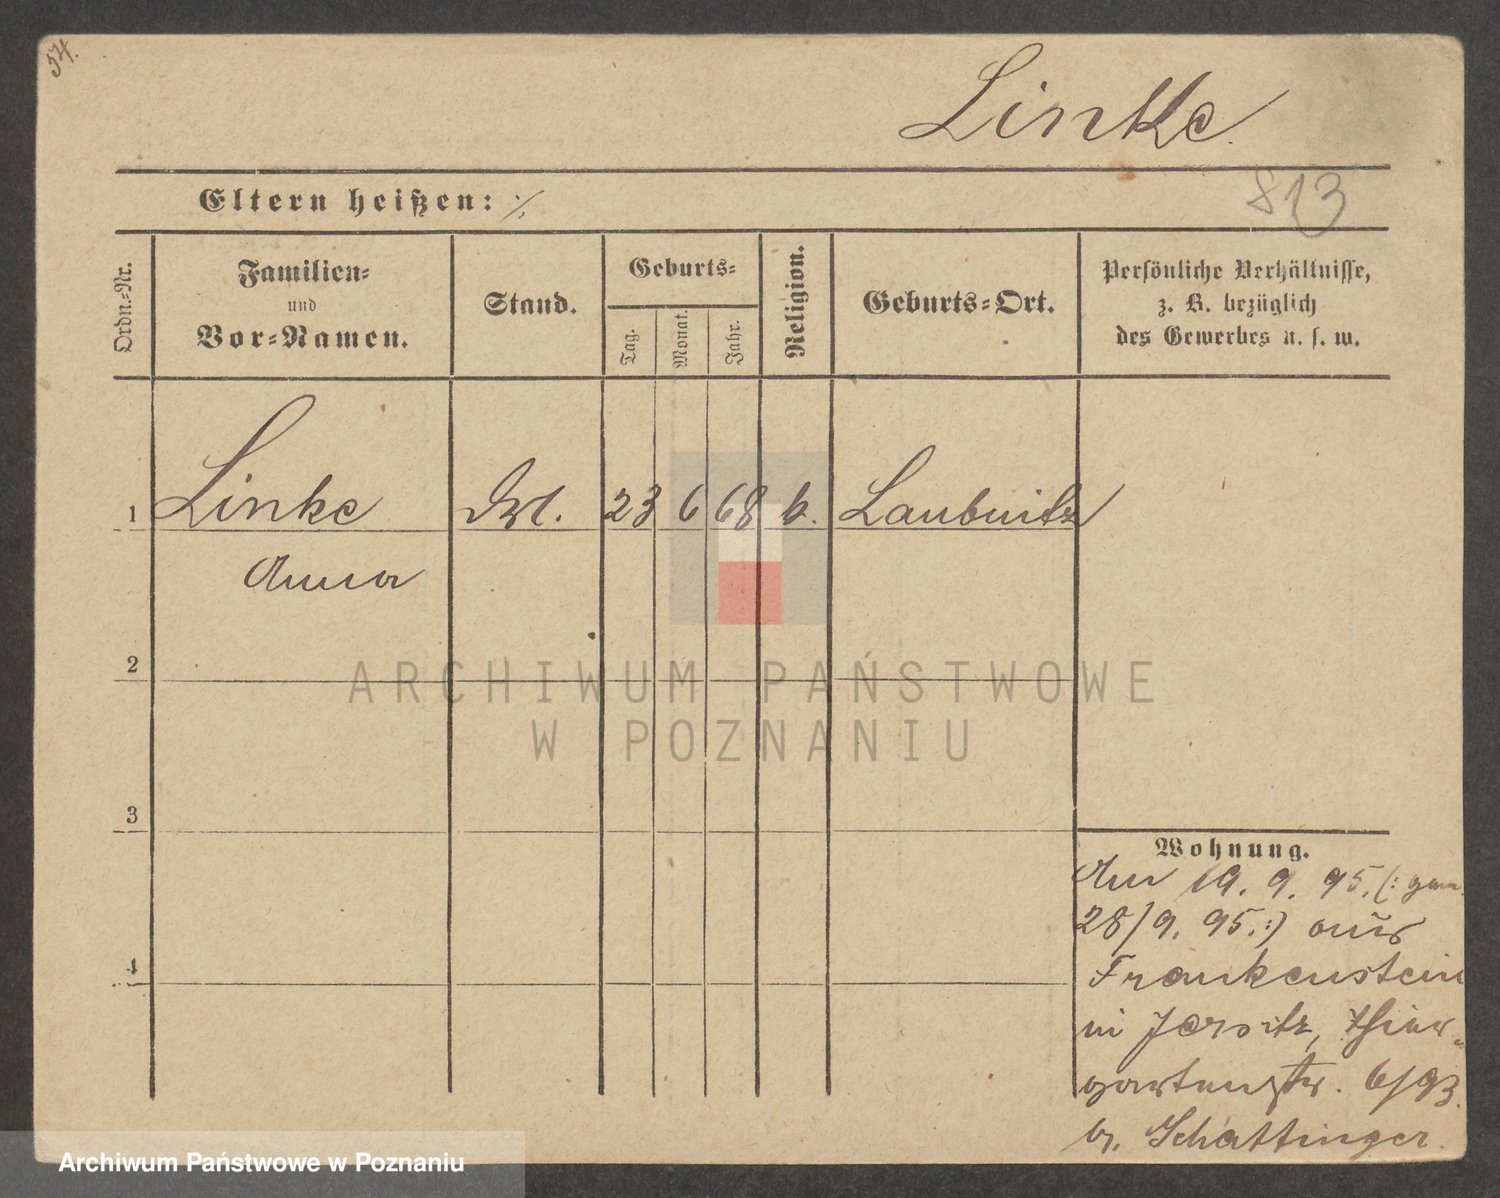 54.
Linke.
813
Eltern heißen: ·/.
Ordn.-Nr.
Familien-
und
Vor-Namen.
Stand.
Geburts-
Tag.
Monat.
Jahr.
Religion.
Geburts-Ort.
Persönliche Verhältnisse,
z. B. bezüglich
des Gewerbes u. s. w.
1 Linke 23 6 68 k. Laubnitz
Anna
2
ARCHIWUM PAŃSTWOWE
W POZNANIU
3
Wohnung.
Am 19. 9. 95. (: gem.
28/9. 95. :) aus
4
Frankenstein
in Jersitz, Thier-
gartenstr. 6/93.
b. Schattinger.
Archiwum Państwowe w Poznaniu